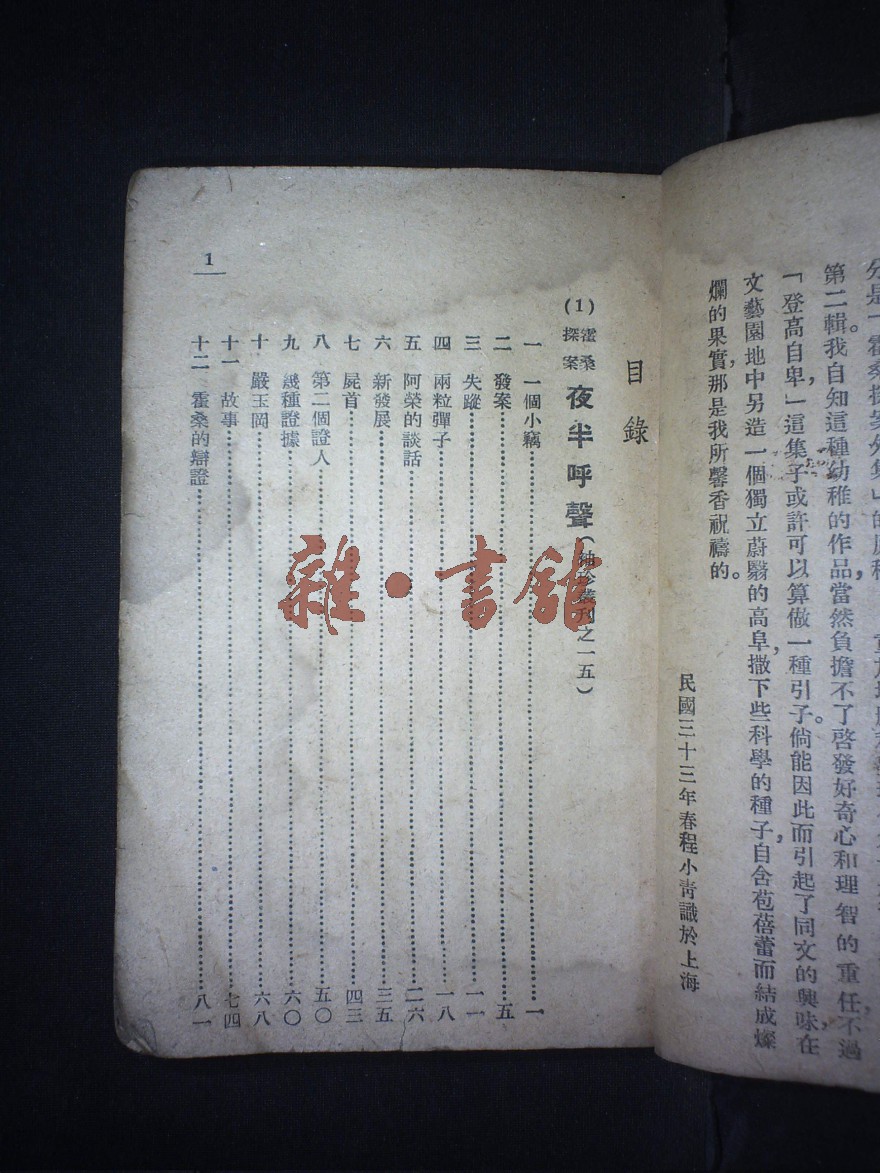 第二輯。我自知這種幼稚的作品，當然負擔不了啓發好奇心和理智的重任，不過
「登高自卑，」這集子或許可以算做一種引子。倘能因此而引起了同文的興味，在
文藝園地中另造一個獨立蔚翳的高阜，撒下些科學的種子，自含苞蓓蕾而結成燦
爛的果實，那是我所馨香祝禱的。
民國三十三年春程小青識於上海
目錄
(1) 霍桑探案 夜半呼聲（袖珍叢刊之一五）
一 一個小竊 一
二 發案 五
三 失蹤 一一
四 兩粒彈子 一八
五 阿榮的談話 二六
六 新發展 三五
七 屍首 四三
八 第二個證人 五〇
九 幾種證據 六〇
十 嚴玉岡 六八
十一 故事 七四
十二 霍桑的辯證 八一
1
雜·書館